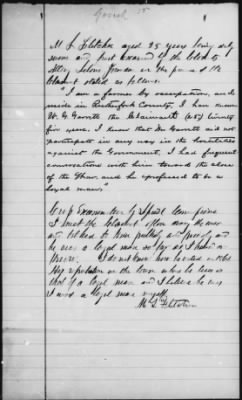 M L Fletcher aged 25 years being duly
sworn and first Examined by the Claimt
Atty, in the presence of the
Claimant stated as follows.
I am a farmer by occupation, and
reside in Rutherford County, I have known
W. G. Garrett the Claimant (25) twenty
five years. I know that Mr Garrett did not
participate in any way in the hostilities
against the Government, I had frequent
conversations with him towards the close
of the War. and he professed to be a
loyal man.
Cross Examination by Special Commissioner
I met the Claimant often during the war
and talked to him publicly and privately and
he was a loyal man so far as I know or
I do not know how he voted in 1861
His reputation in the town where he lived is
that of a loyal man and I believe he was
I was a loyal man myself.
M. L. Fletcher